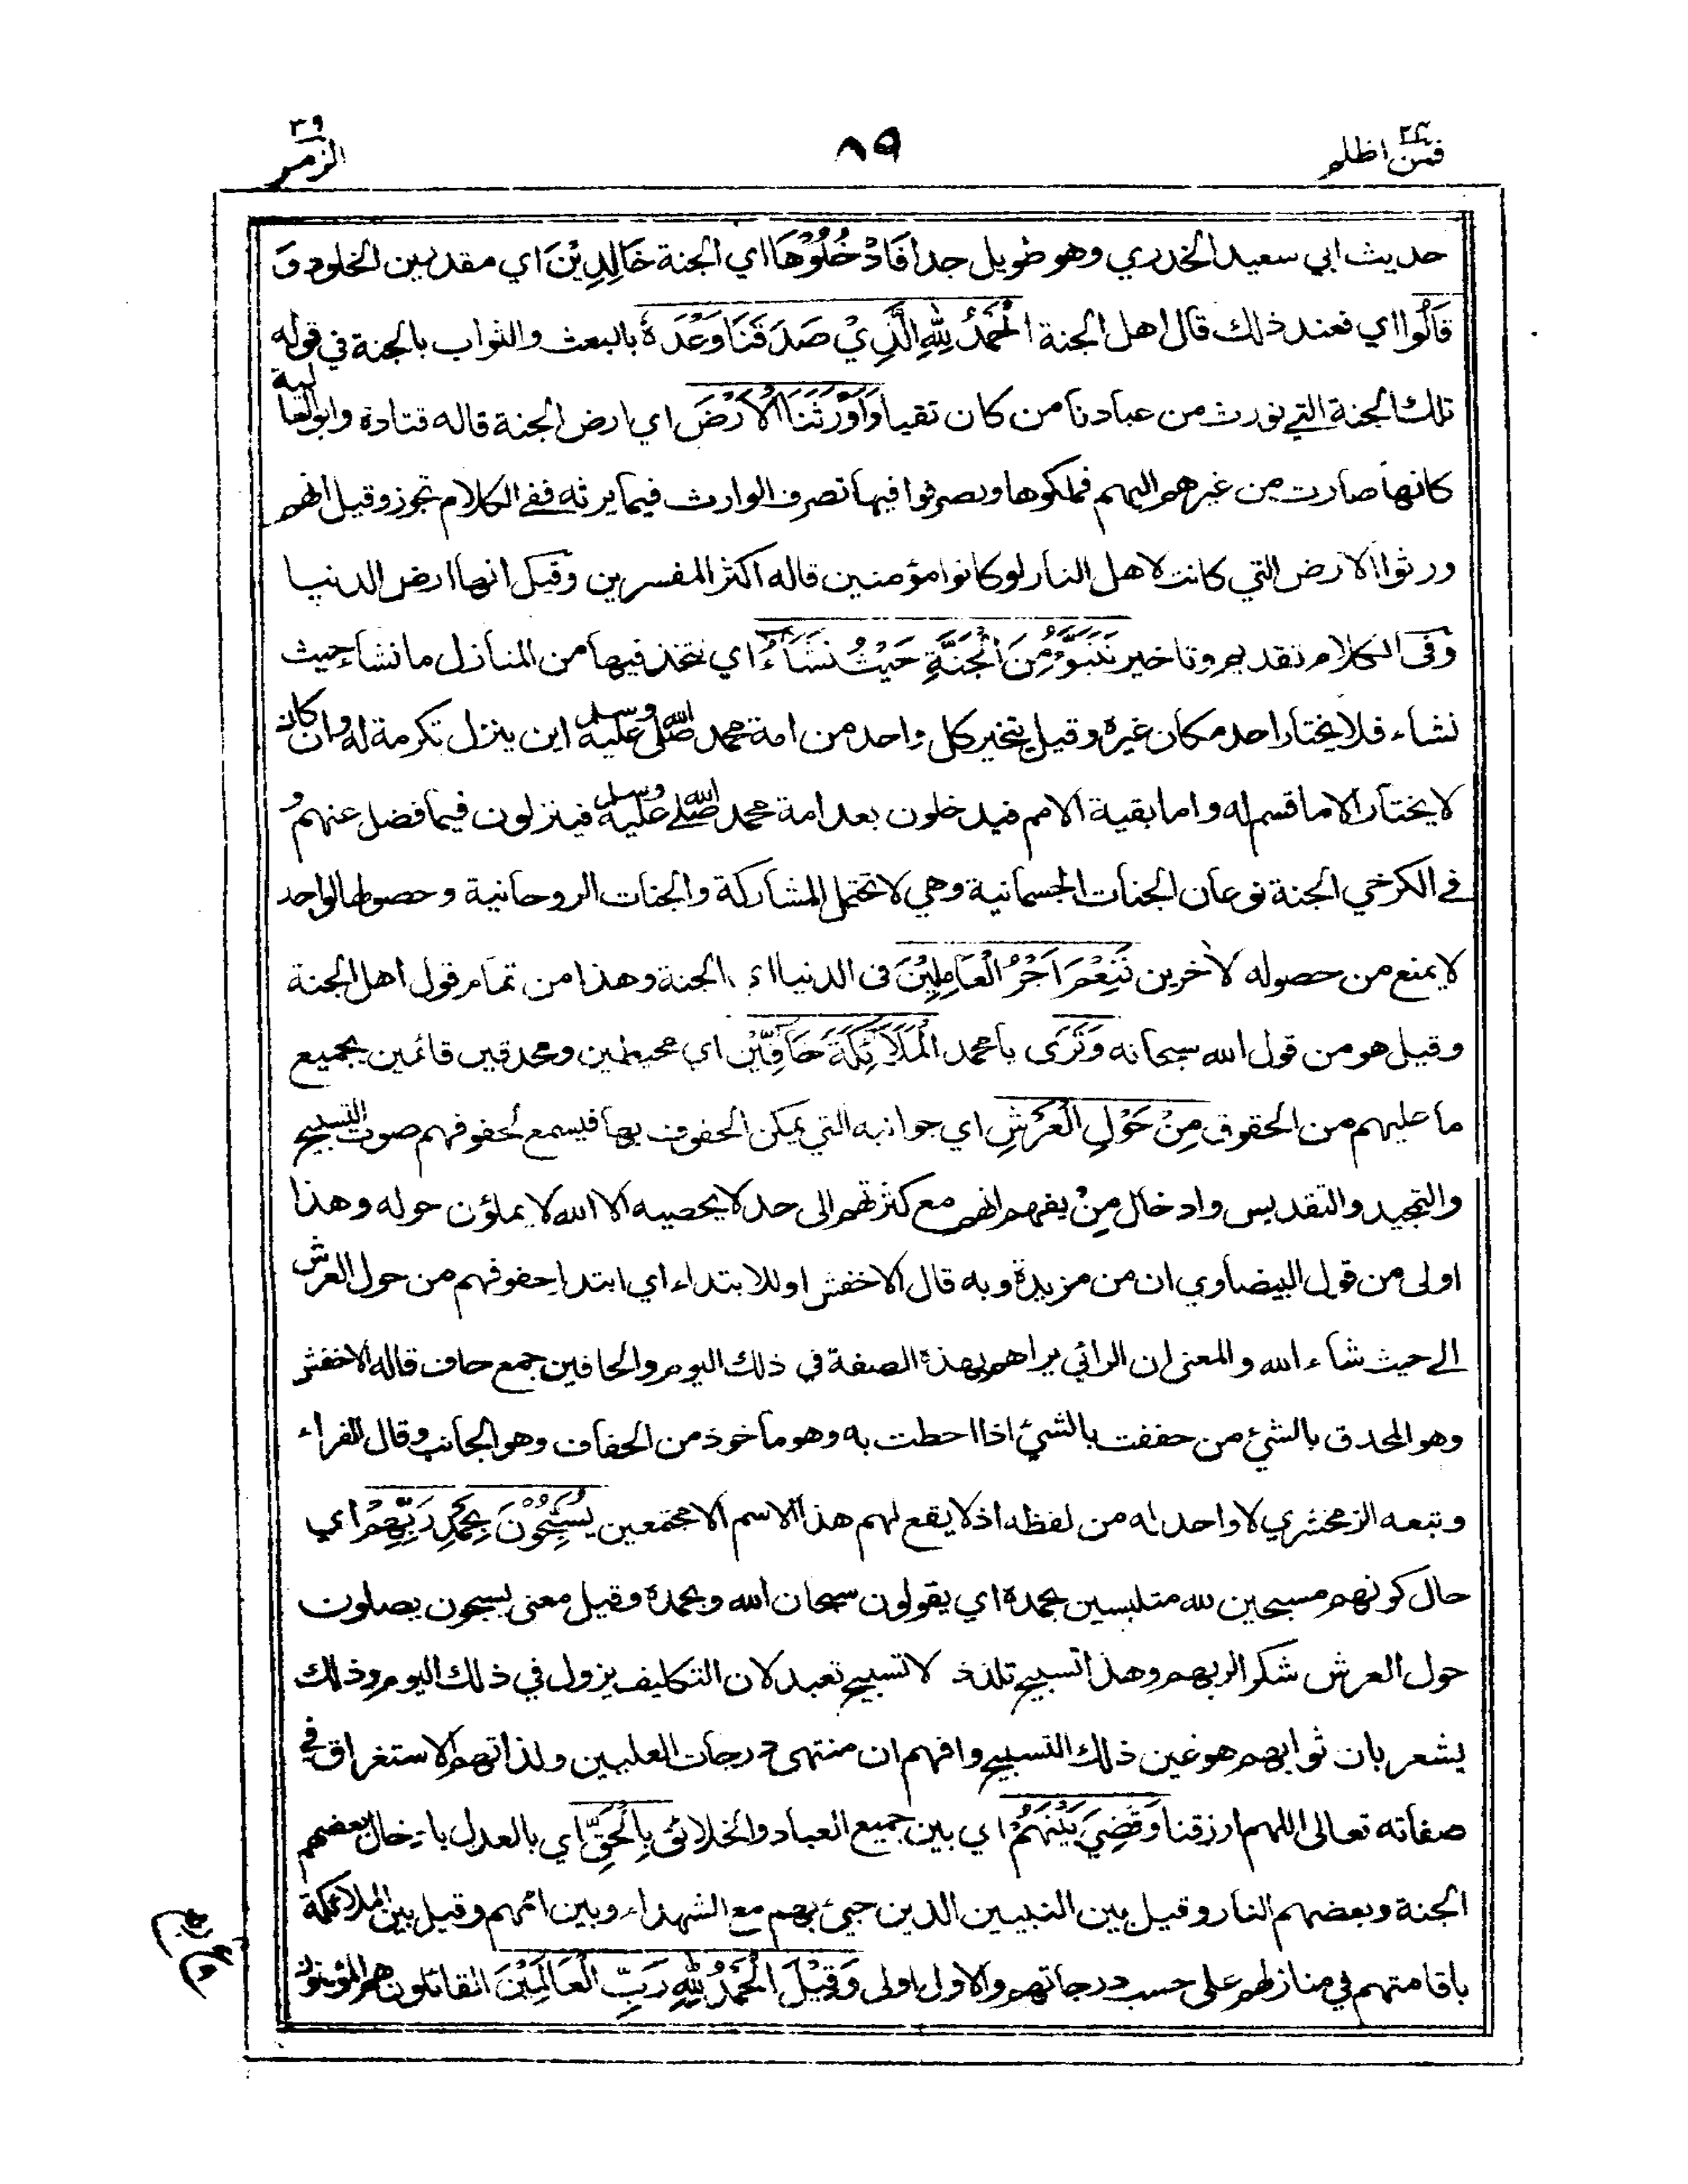 فمن اظلم ٢٤
٨٩
الزمر ٣٩
حديث ابي سعيد الخدري وهو طويل جدا فَادْخُلُوْهَا اي الجنة خَالِدِيْنَ اي مقدرين الخلود وَ
قَالُوا اي فعند ذلك قال اهل الجنة الْحَمْدُ لِلّٰهِ الَّذِيْ صَدَقَنَا وَعْدَهٗ بالبعث والثواب بالجنة في قوله
تلك الجنة التي نورث من عبادنا من كان تقيا وَاَوْرَثَنَا الْاَرْضَ اي ارض الجنة قاله قتادة وابو العالية
كانها صارت من غيرهم اليهم فملكوها وتصرفوا فيها تصرف الوارث فيما يرثه ففي الكلام تجوز وقيل انهم
ورثوا الارض التي كانت لاهل النار لو كانوا مؤمنين قاله اكثر المفسرين وقيل انها ارض الدنيا
وفي الكلام تقديم وتاخير نَتَبَوَّءُ مِنَ الْجَنَّةِ حَيْثُ نَشَآءُ اي نتخذ فيها من المنازل ما نشاء حيث
نشاء فلا يختار احد مكان غيره وقيل يتخير كل واحد من امة محمد صلى الله عليه وسلم اين ينزل تكرمة له وان كان
لا يختار الا ما قسم له واما بقية الامم فيدخلون بعد امة محمد صلى الله عليه وسلم فينزلون فيما فضل عنهم و
في الكرخي الجنة نوعان الجنات الجسمانية وهي لا تحتمل المشاركة والجنات الروحانية وحصولها لواحد
لا يمنع من حصوله لاخرين فَنِعْمَ اَجْرُ الْعَامِلِيْنَ في الدنيا اي الجنة وهذا من تمام قول اهل الجنة
وقيل هو من قول الله سبحانه وَتَرَى يا محمد الْمَلَآئِكَةَ حَافِّيْنَ اي محيطين ومحدقين قائمين بجميع
ما عليهم من الحقوق مِنْ حَوْلِ الْعَرْشِ اي جوانبه التي يمكن الحفوف بها فيسمع لحفوفهم صوت التسبيح
والتمجيد والتقديس وادخال مِنْ يفهم انهم مع كثرتهم الى حد لا يحصيه الا الله لا يملؤن حوله وهذا
اولى من قول البيضاوي ان من مزيدة وبه قال الاخفش او للابتداء اي ابتدا حفوفهم من حول العرش
الى حيث شاء الله والمعنى ان الرائي يراهم بهذه الصفة في ذلك اليوم والحافين جمع حاف قاله الاخفش
وهو المحدق بالشئ من حففت بالشئ اذا احطت به وهو ماخوذ من الحفاف وهو الجانب وقال الفراء
وتبعه الزمخشري لا واحد له من لفظه اذ لا يقع لهم هذا الاسم الا مجتمعين يُسَبِّحُوْنَ بِحَمْدِ رَبِّهِمْ اي
حال كونهم مسبحين لله متلبسين بحمده اي يقولون سبحان الله وبحمده وقيل معنى يسبحون يصلون
حول العرش شكرا لربهم وهذا تسبيح تلذذ لا تسبيح تعبد لان التكليف يزول في ذلك اليوم وذلك
يشعر بان ثوابهم هو عين ذلك التسبيح وافهم ان منتهى درجات العليين ولذاتهم الاستغراق في
صفاته تعالى اللهم ارزقنا وَقُضِيَ بَيْنَهُمْ اي بين جميع العباد والخلائق بِالْحَقِّ اي بالعدل بادخال بعضهم
الجنة وبعضهم النار وقيل بين النبيين الذين جيئ بهم مع الشهداء وبين اممهم وقيل بين الملائكة
باقامتهم في منازلهم على حسب درجاتهم والاول اولى وَقِيْلَ الْحَمْدُ لِلّٰهِ رَبِّ الْعَالَمِيْنَ القائلون هم المؤمنون